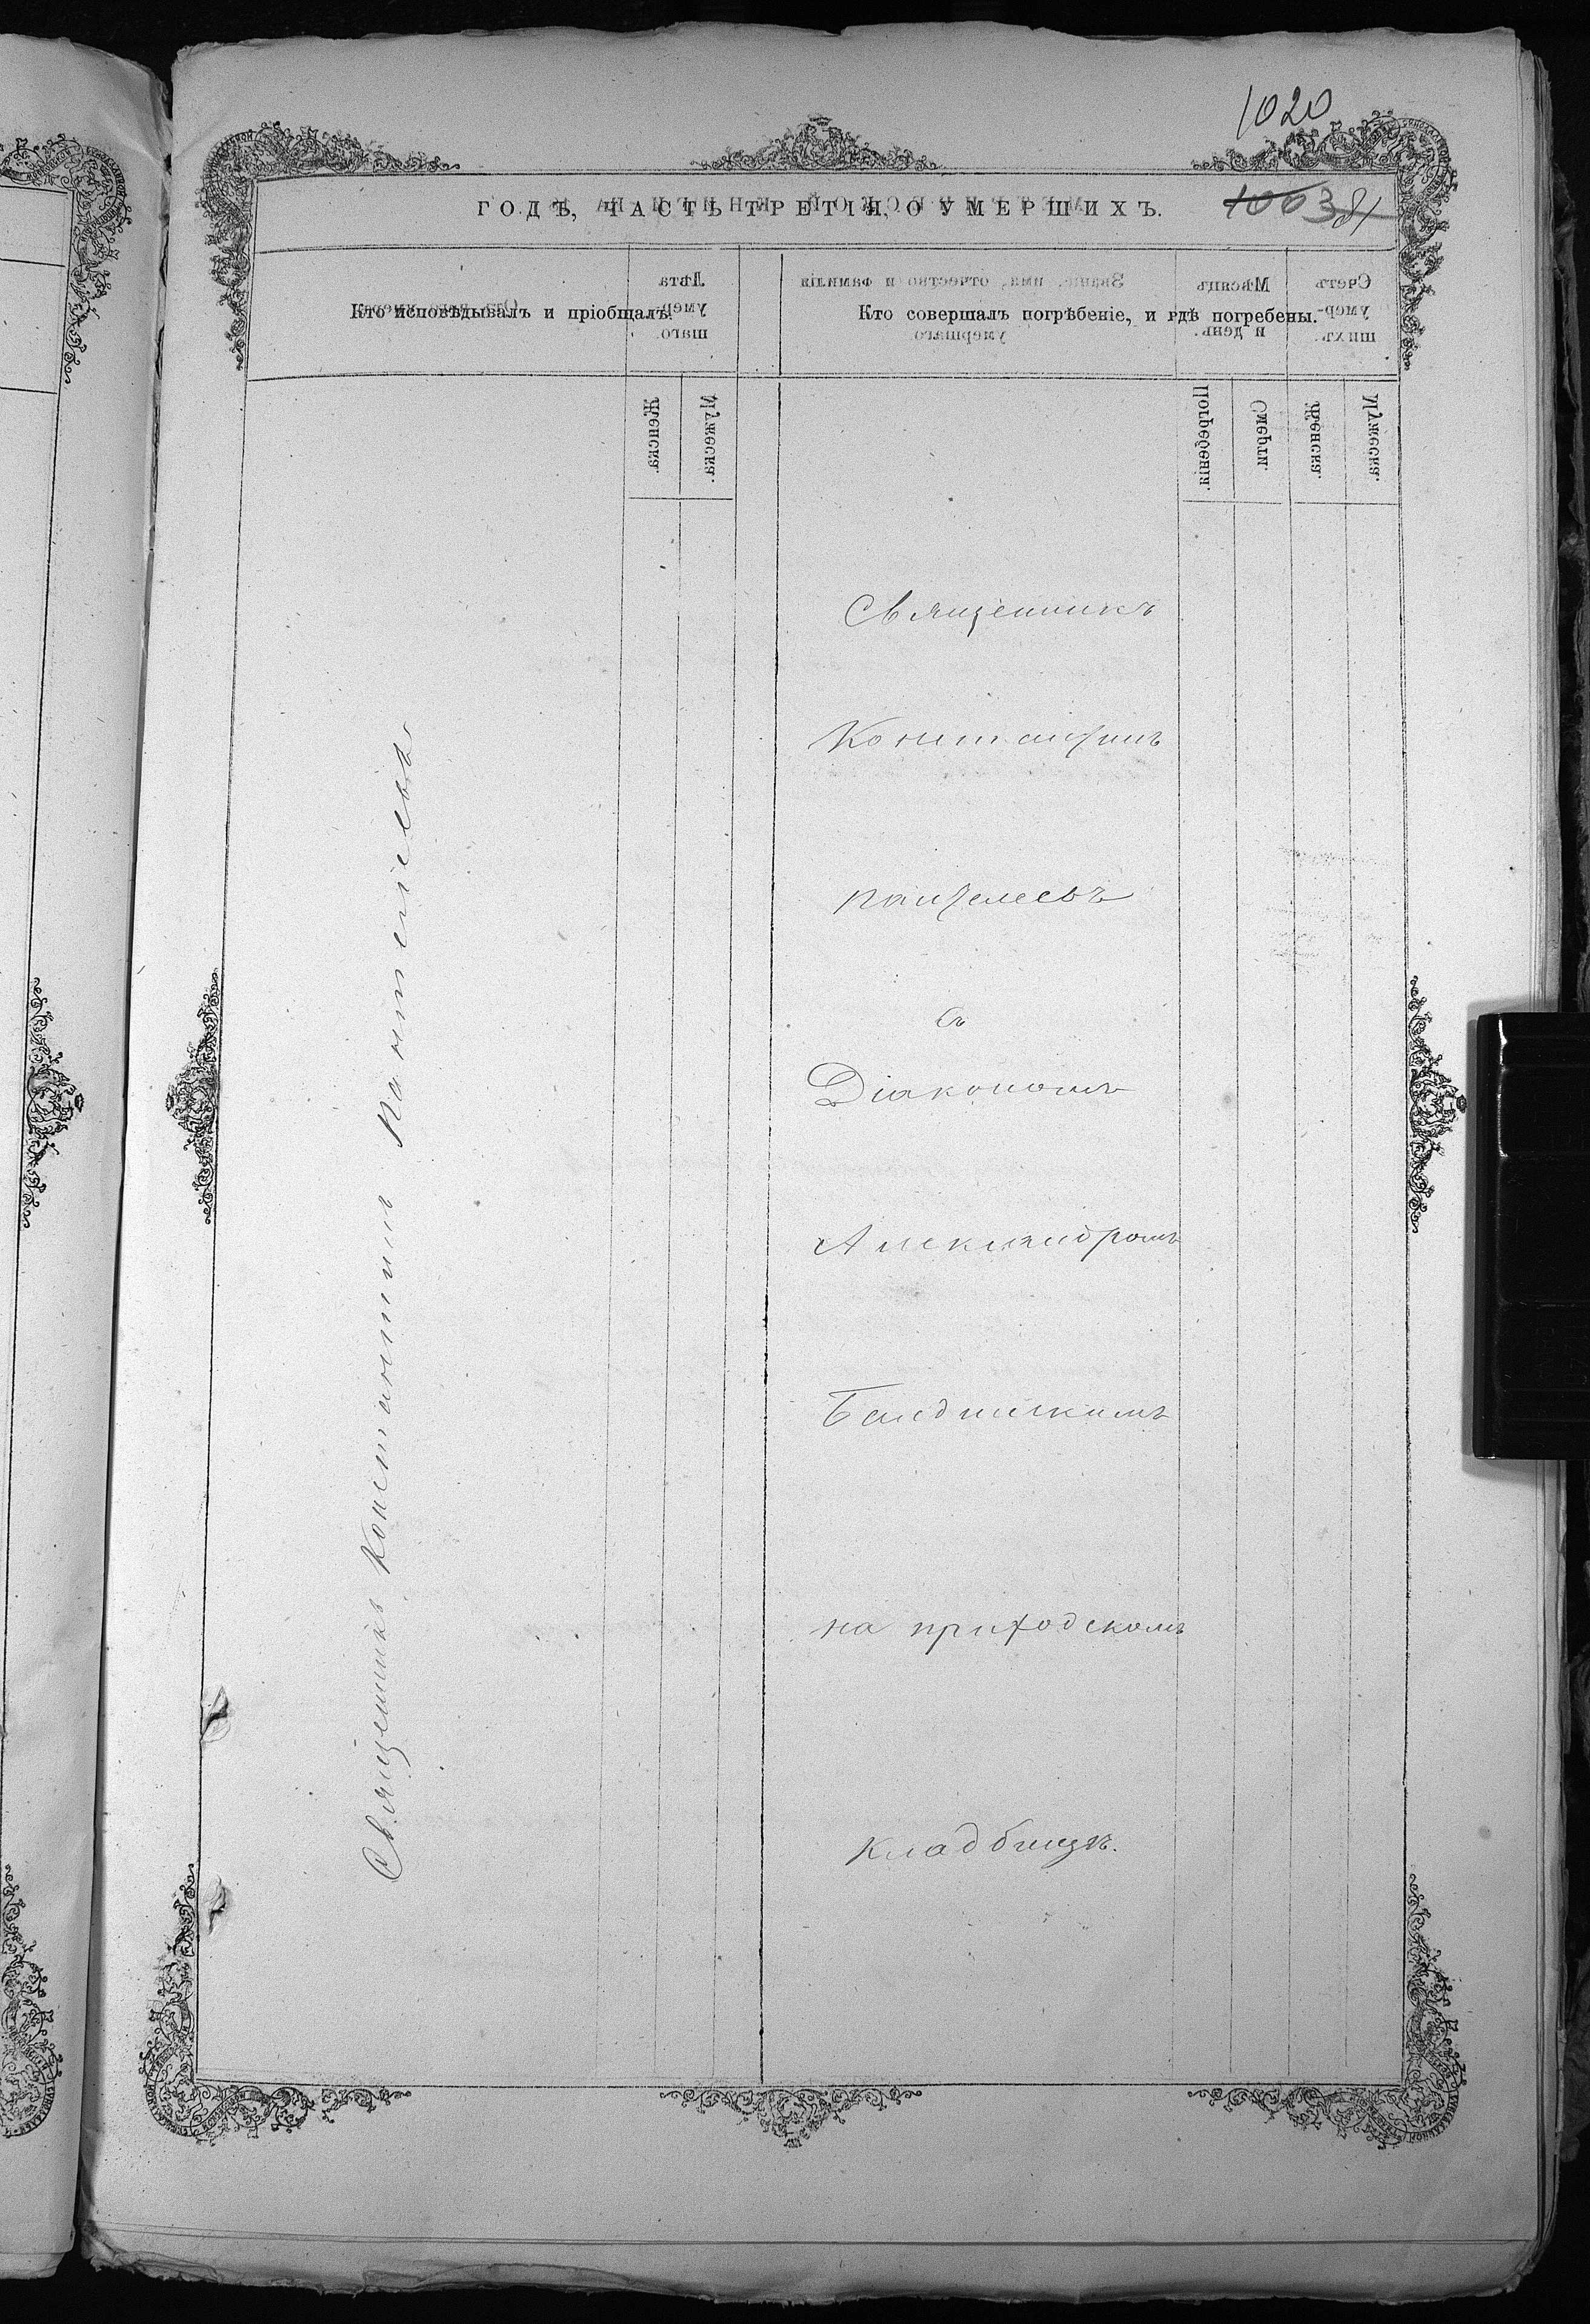 1020
ГОДѢ, ЧАСТЬ ТРЕТІЯ, О УМЕРШИХЪ.
1003 81
Кто исповѣдывалъ и пріобщалъ.
Кто совершалъ погрѣбеніе, и гдѣ погребены.
Священникъ Константинъ Пантелѣевъ
Священникъ
Константинъ
Пантелеевъ
съ
Діакономъ
Александромъ
на приходскомъ
кладбищѣ.